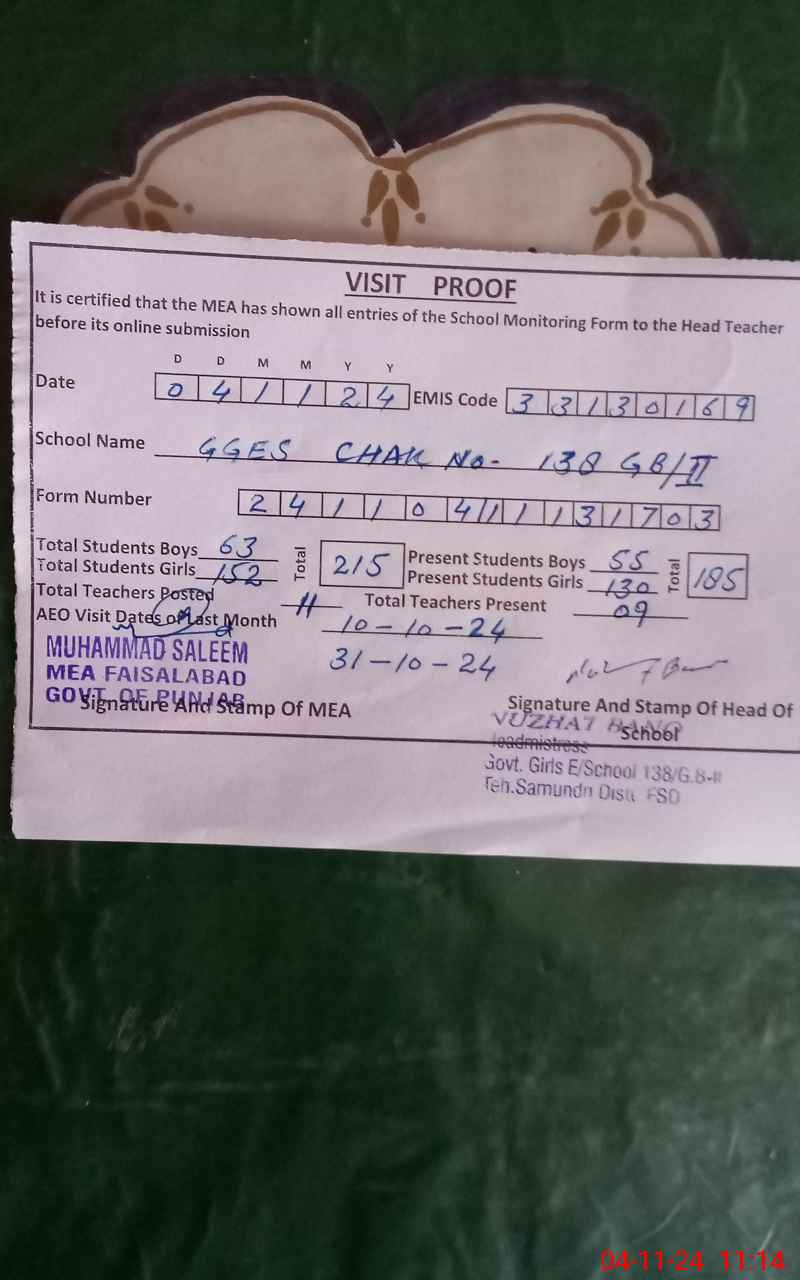 VISIT PROOF
It is certified that the MEA has shown all entries of the School Monitoring Form to the Head Teacher
before its online submission
D D M M Y Y
Date 0 4 1 1 2 4 EMIS Code 3 3 1 3 0 1 6 9
School Name GGES CHAK No- 138 GB/II
Form Number 2 4 1 1 0 4 1 1 1 3 1 7 0 3
Total Students Boys 63 Total 215 Present Students Boys 55 Total 185
Total Students Girls 152 Present Students Girls 130
Total Teachers Posted 11 Total Teachers Present 09
AEO Visit Dates of Last Month 10-10-24
31-10-24
MUHAMMAD SALEEM
MEA FAISALABAD
GOVT. OF PUNJAB
Signature And Stamp Of MEA
Signature And Stamp Of Head Of
School
NUZHAT BANO
Headmistress
Govt. Girls E/School 138/G.B-II
Teh.Samundri Distt. FSD
04-11-24 11:14